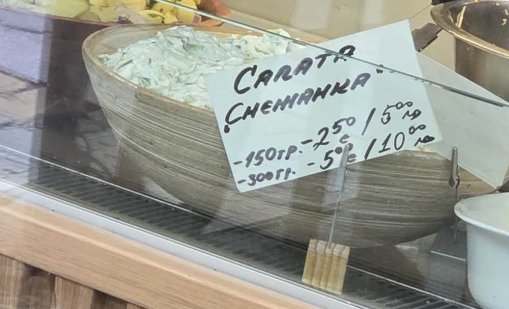 САЛАТА
"СНЕЖАНКА"
-150ГР. -2⁵⁰ € / 5⁰⁰ ЛВ
-300ГР. -5⁰⁰ € / 10⁰⁰ ЛВ